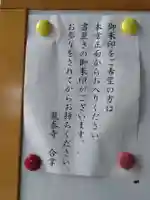 御朱印をご希望の方は
本堂正面からお入りください
書置きの御朱印がございます。
お参りをされてからお持ちください
龍泰寺 合掌